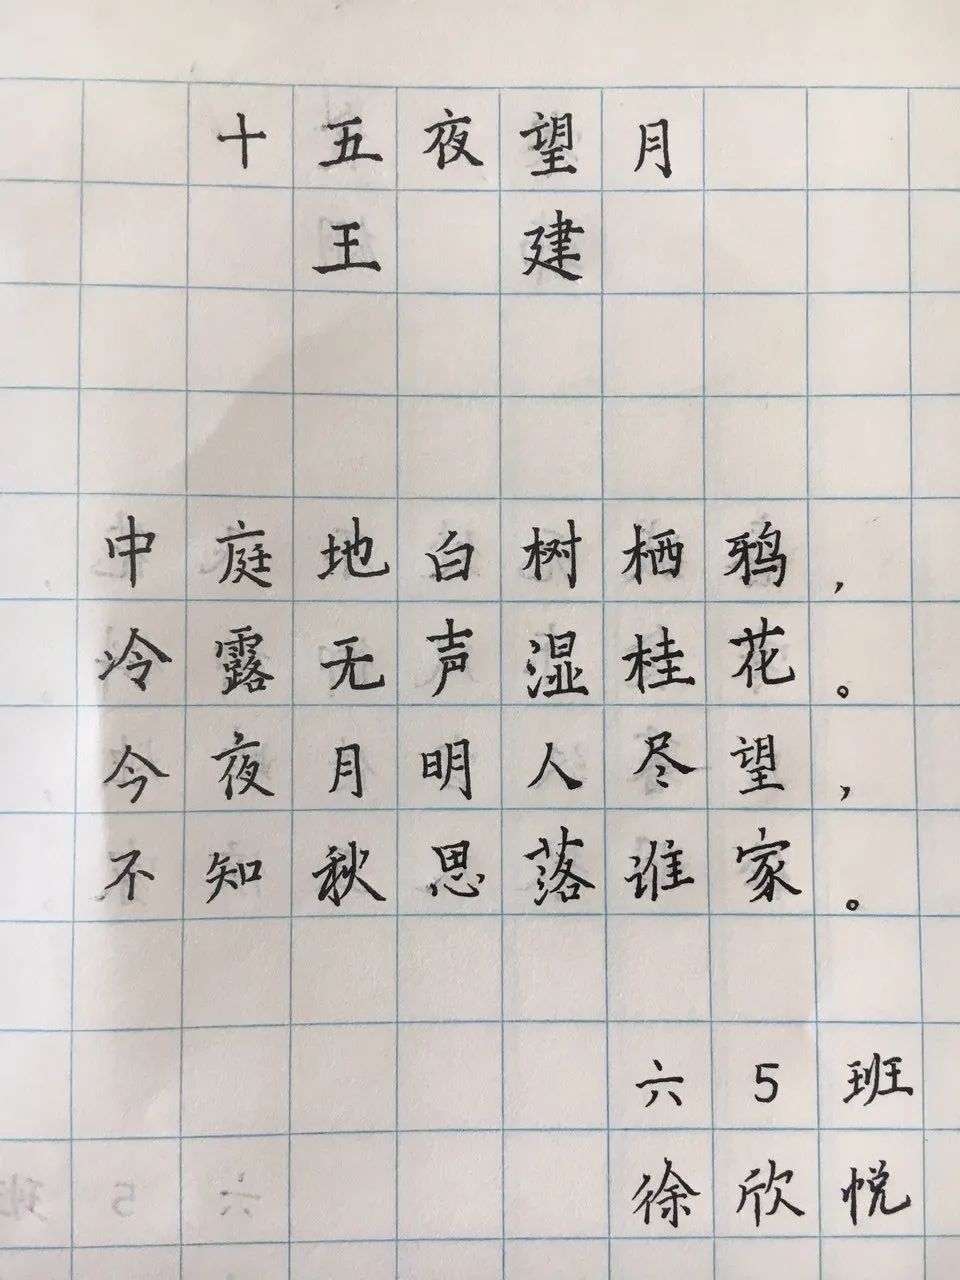 十五夜望月
王 建
中庭地白树栖鸦，
冷露无声湿桂花。
今夜月明人尽望，
不知秋思落谁家。
六5班
徐欣悦